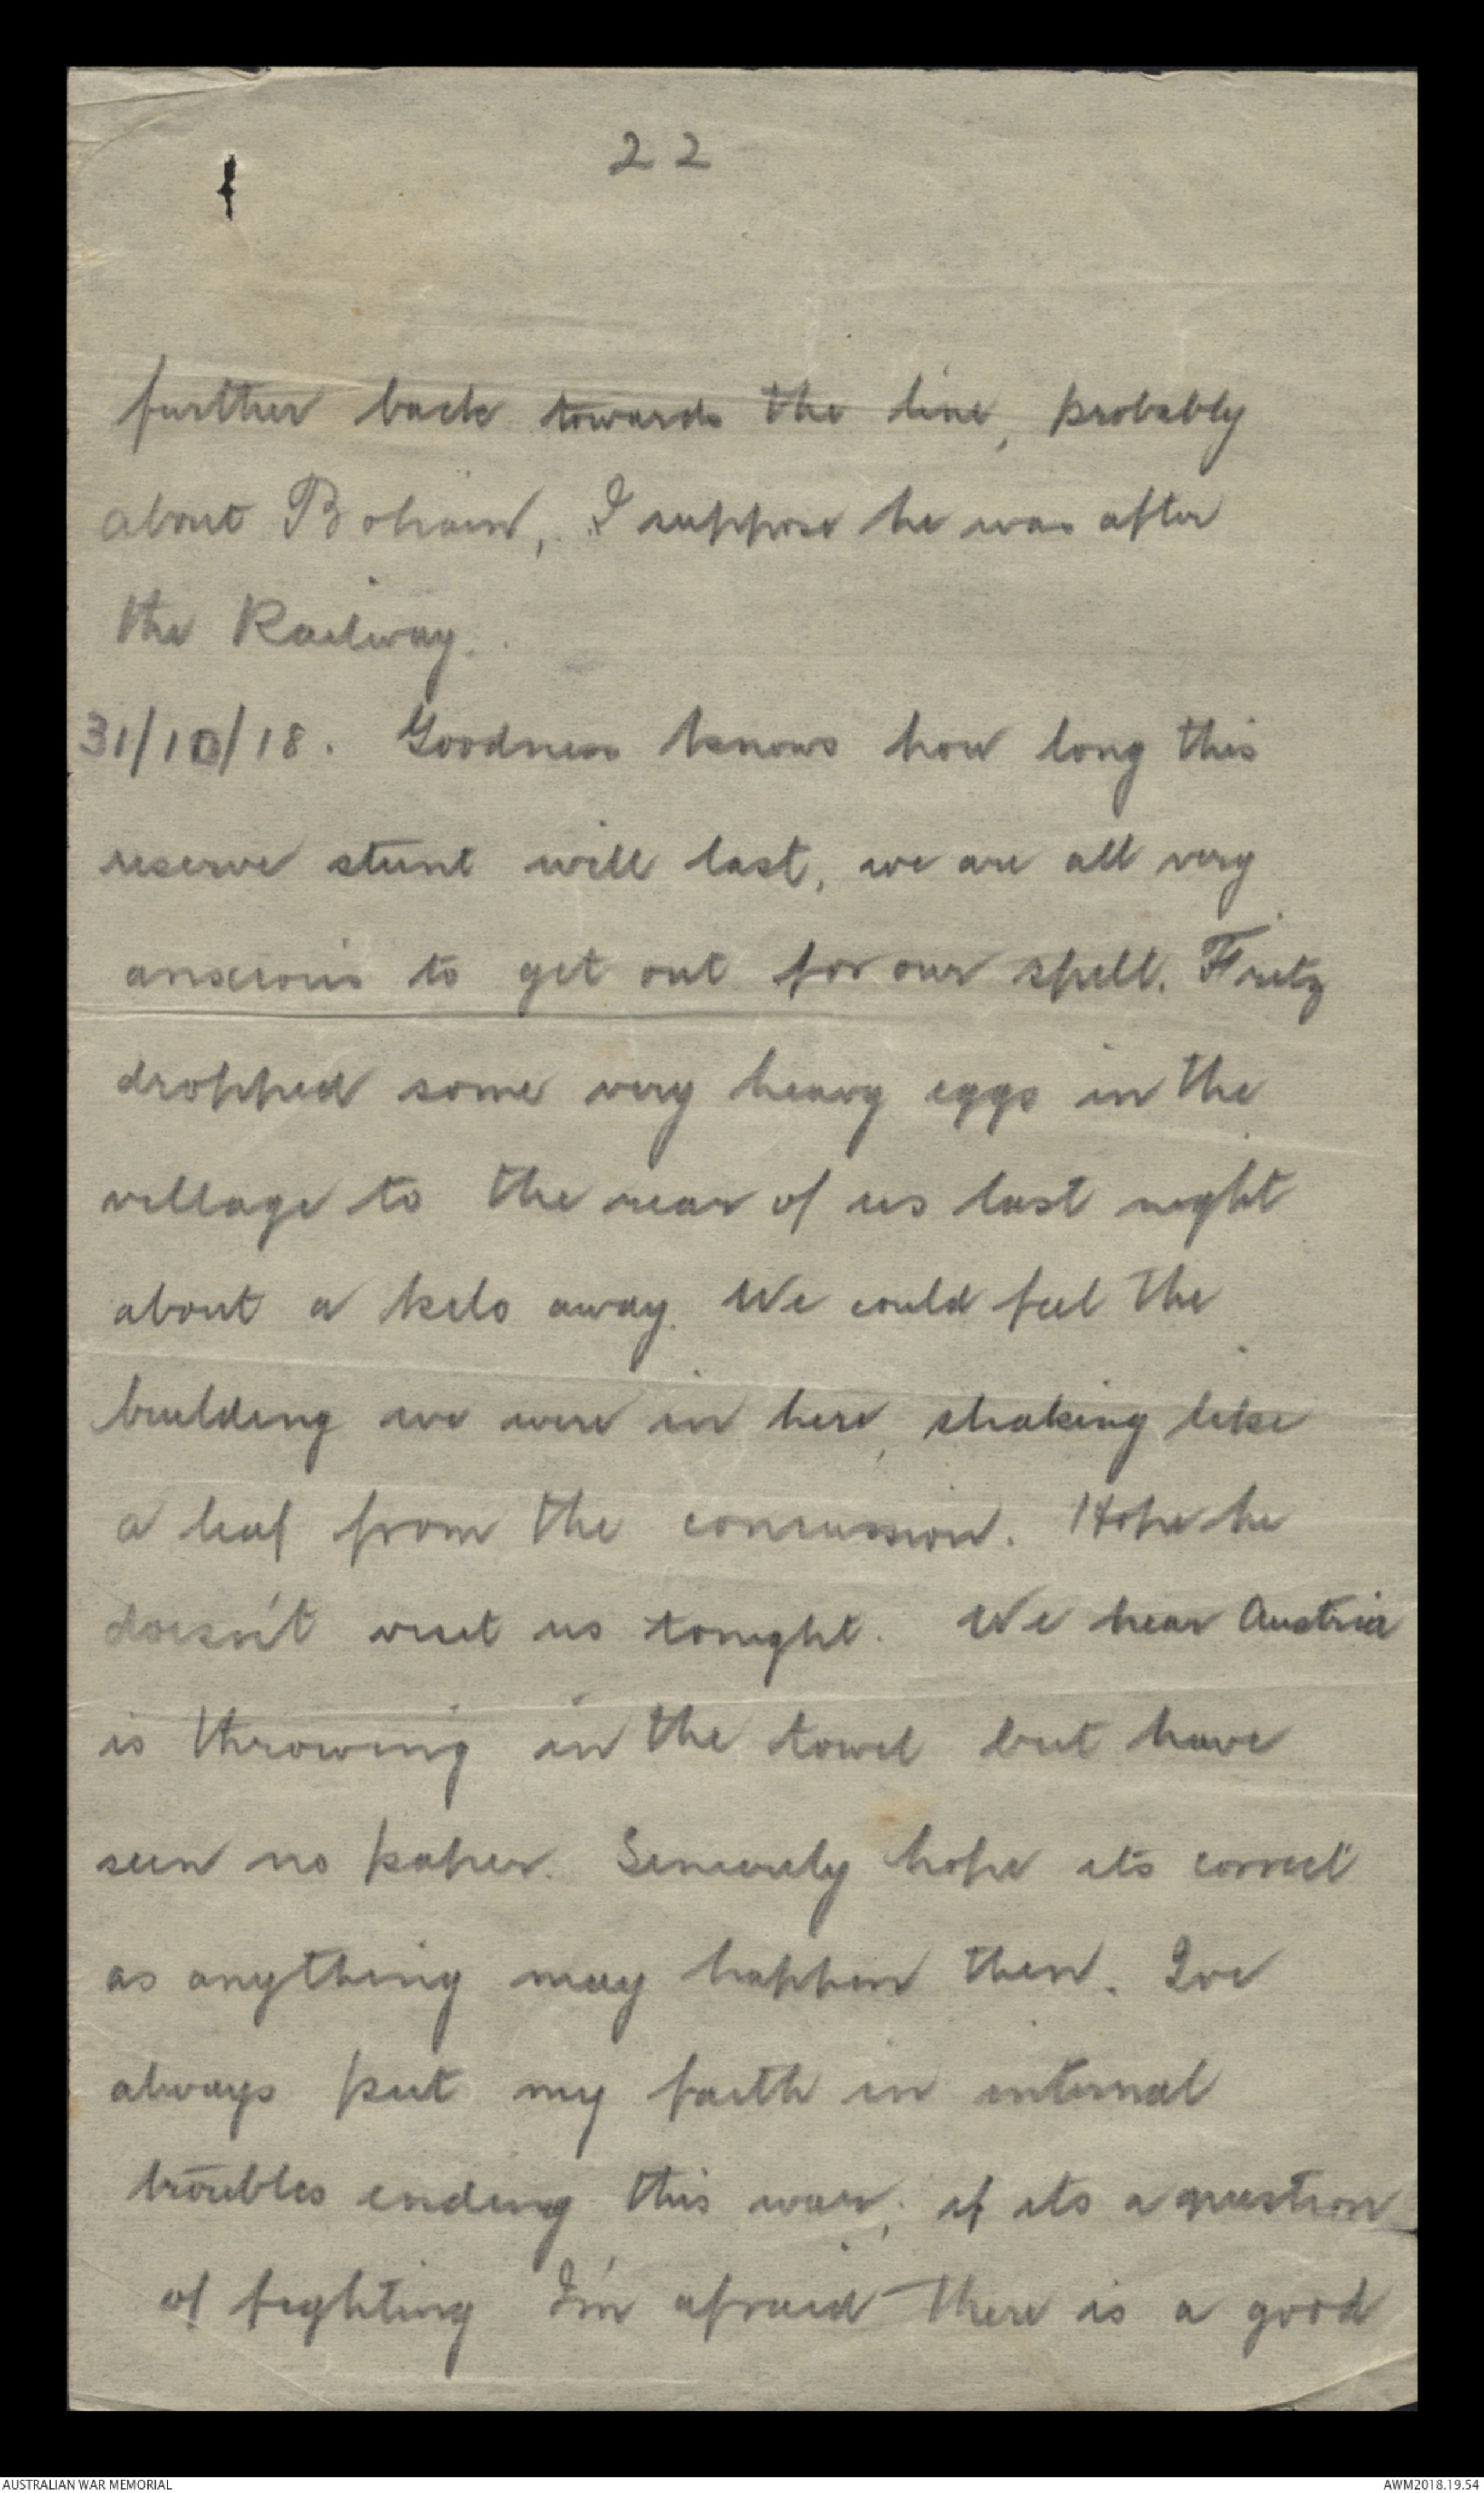 22
further back towards the line, probably
about Bohain, I suppose he was after
the Railway.
31/10/18. Goodness knows how long this
reserve stunt will last, we are all very
anxious to get out for our spell. Fritz
dropped some very heavy eggs in the
village to the rear of us last night
about a kilo away. We could feel the
building we were in here, shaking like
a leaf from the concussion. Hope he
doesn't visit us tonight. We hear Austria
is throwing in the towel but have
seen no paper. Sincerely hope its correct
as anything may happen then. Ive
always put my faith in internal
troubles ending this war; if its a question
of fighting I'm afraid there is a good
AUSTRALIAN WAR MEMORIAL
AWM2018.19.54